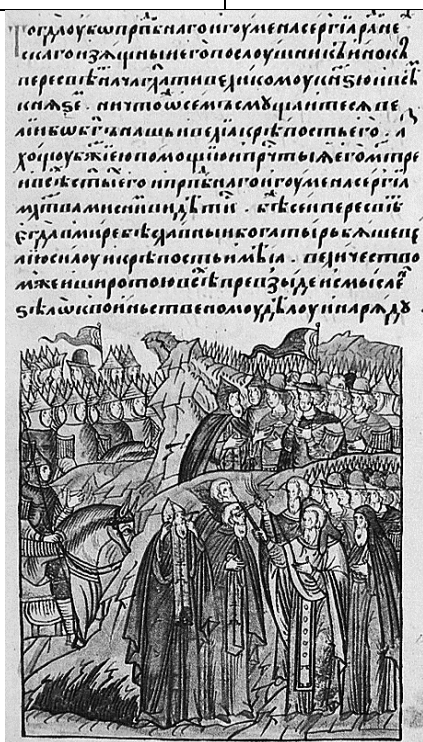 Тогда оубѡ прпⷣбнаго игоумена сергїа радоне
скаго изѧщныи его послоушникъ инокъ
пересвѣ нача глати великомоу кнѧѕю и всѣⷨ
кнѧѕе. ничтоѡ семъ смꙋщаитесѧ ве
лїи бѡ бг҃ъ нашь и велїа крѣпость его. а
хощоу бжїею помощїю и прчⷭтыѧ его мт҃ре
и всѣⷯ ст҃ыⷯ его и прпⷣбнаго игоумена сергїа
млтвами с ни видѣтиⷭ. бѣ сеи пересвѣ
егда в мирѣ бѣ славныи богатырь бѧше ве
лїю силоу и крѣпость имѣа. величество
мже и широтою всѣⷯ превзыде и смысле
ѕѣлѡ к воиньственомоу дѣлоу и нарѧдꙋ.